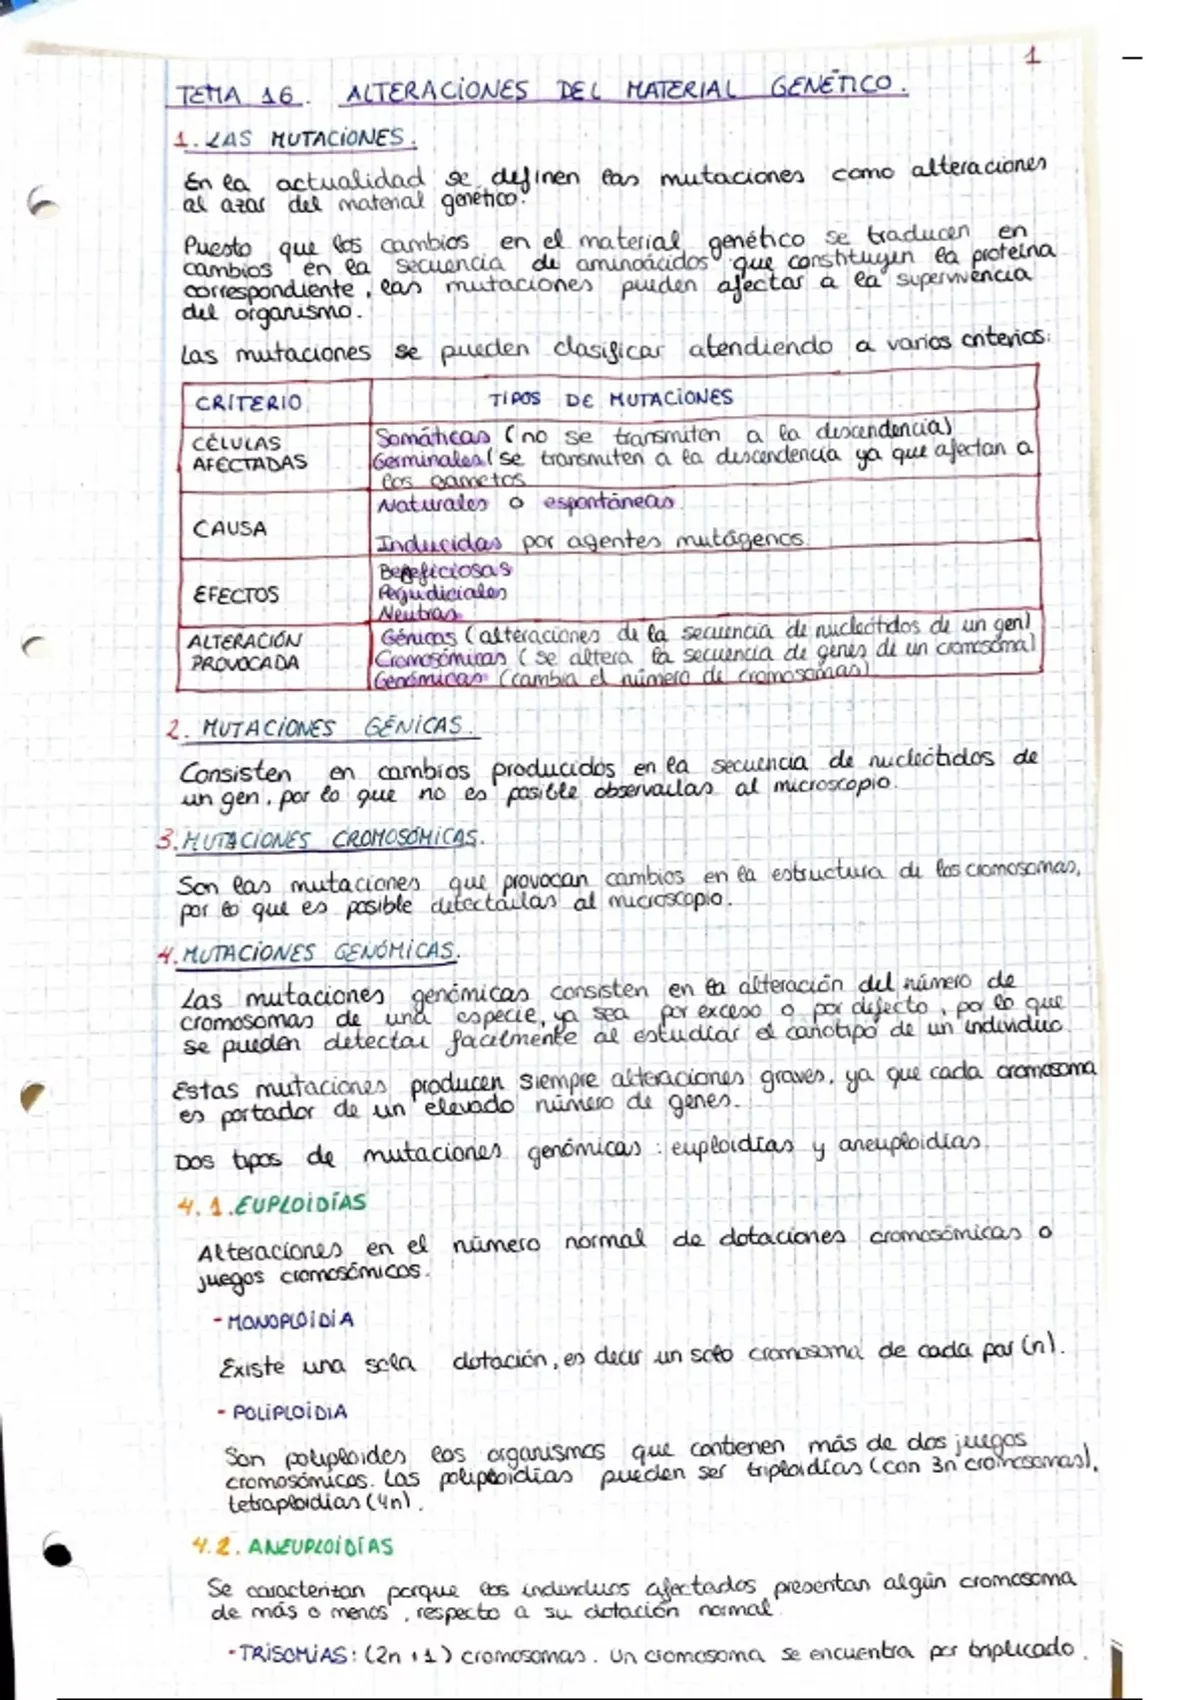 1
TEMA 16. ALTERACIONES DEL MATERIAL GENÉTICO.
1. LAS MUTACIONES.
En la actualidad se definen las mutaciones como alteraciones
al azar del material genético.
Puesto que los cambios en el material genético se traducen en
cambios en la secuencia de aminoácidos que constituyen la proteína
correspondiente, las mutaciones pueden afectar a la supervivencia
del organismo.
Las mutaciones se pueden clasificar atendiendo a varios criterios:
CRITERIO TIPOS DE MUTACIONES
CÉLULAS AFECTADAS
Somáticas (no se transmiten a la descendencia)
Germinales (se transmiten a la descendencia ya que afectan a
los gametos
CAUSA
Naturales o espontáneas.
Inducidas por agentes mutágenos
EFECTOS
Beneficiosas
Perjudiciales
Neutras
ALTERACIÓN PROVOCADA
Génicas (alteraciones de la secuencia de nucleótidos de un gen)
Cromosómicas (se altera la secuencia de genes de un cromosoma)
Genómicas (cambia el número de cromosomas)
2. MUTACIONES GÉNICAS.
Consisten en cambios producidos en la secuencia de nucleótidos de
un gen, por lo que no es posible observarlas al microscopio.
3. MUTACIONES CROMOSÓMICAS.
Son las mutaciones que provocan cambios en la estructura de los cromosomas,
por lo que es posible detectarlas al microscopio.
4. MUTACIONES GENÓMICAS.
Las mutaciones genómicas consisten en la alteración del número de
cromosomas de una especie, ya sea por exceso o por defecto, por lo que
se pueden detectar facilmente al estudiar el cariotipo de un individuo.
Estas mutaciones producen siempre alteraciones graves, ya que cada cromosoma
es portador de un elevado número de genes.
Dos tipos de mutaciones genómicas: euploidías y aneuploidías.
4.1. EUPLOIDÍAS
Alteraciones en el número normal de dotaciones cromosómicas o
juegos cromosómicos.
- MONOPLOIDIA
Existe una sola dotación, es decir un solo cromosoma de cada par (n).
- POLIPLOIDIA
Son poliploides los organismos que contienen más de dos juegos
cromosómicos. Las poliploidías pueden ser triploidías (con 3n cromosomas),
tetraploidías (4n).
4.2. ANEUPLOIDÍAS
Se caracterizan porque los individuos afectados presentan algún cromosoma
de más o menos, respecto a su dotación normal.
- TRISOMIAS: (2n + 1) cromosomas. Un cromosoma se encuentra por triplicado.